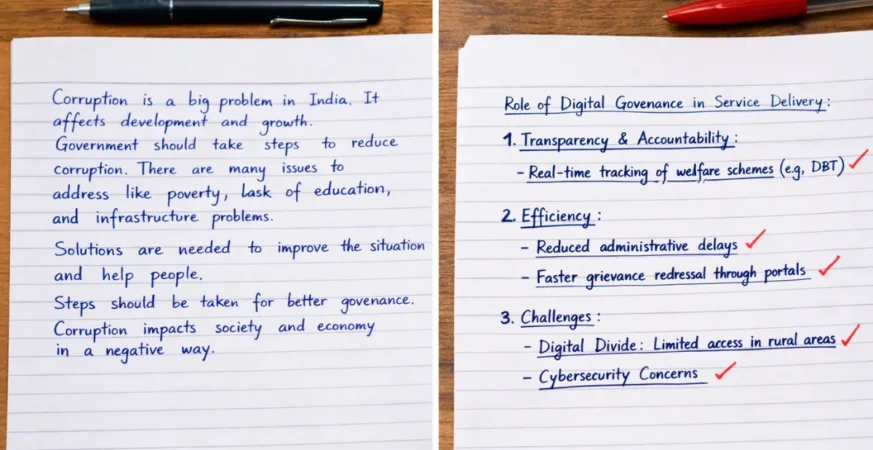 Corruption is a big problem in India. It
affects development and growth.
Government should take steps to reduce
corruption. There are many issues to
address like poverty, lask of education,
and infrastructure problems.
Solutions are needed to improve the situation
and help people.
Steps should be taken for better govenance.
Corruption impacts society and economy
in a negative way.
Role of Digital Govenance in Service Delivery:
1. Transparency & Accountability:
- Real-time tracking of welfare schemes (e.g, DBT)
2. Efficiency:
- Reduced administrative delays
- Faster grievance redressal through portals
3. Challenges:
- Digital Divide: Limited access in rural areas
- Cybersecurity Concerns